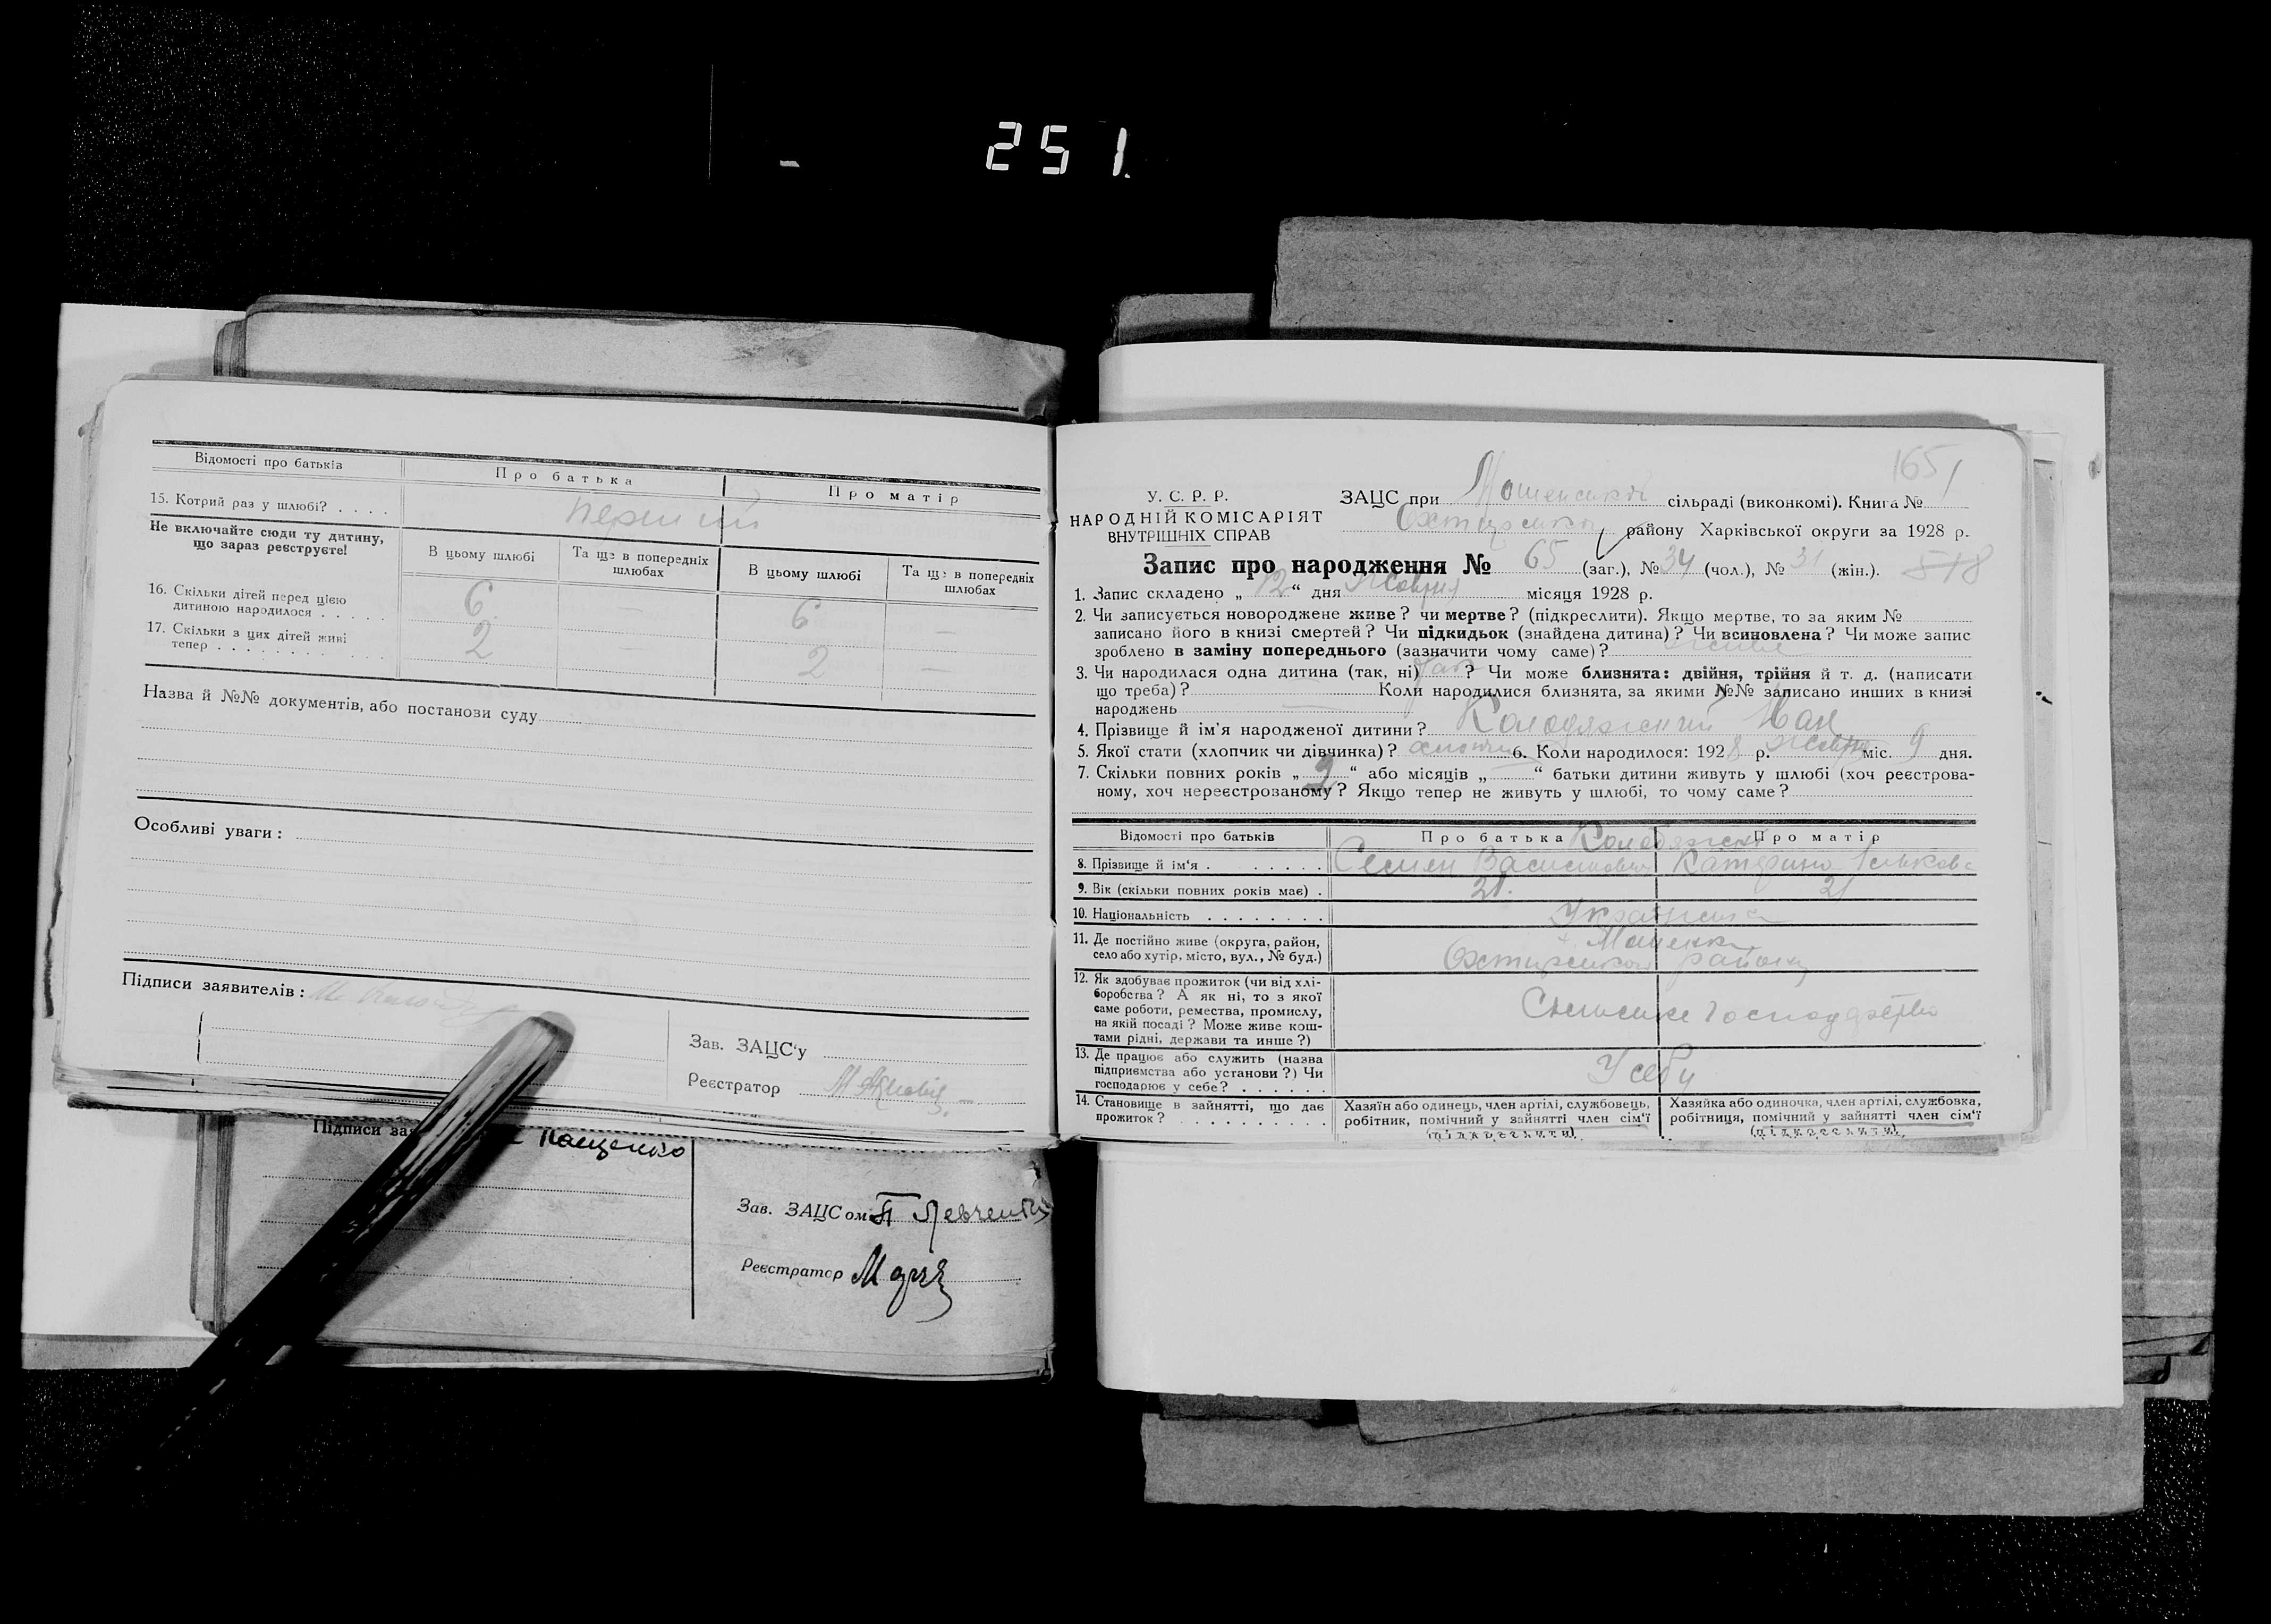 251.
Відомості про батьків
Про батька
Про матір
15. Котрий раз у шлюбі? . . . .
перший
Не включайте сюди ту дитину,
що зараз реєструєте!
В цьому шлюбі
Та ще в попередніх
шлюбах
В цьому шлюбі
Та ще в попередніх
шлюбах
16. Скільки дітей перед цією
дитиною народилося . . . . .
6 — 6 —
17. Скільки з цих дітей живі
тепер . . . . . . . . . . .
2 — 2 —
Назва й №№ документів, або постанови суду
Особливі уваги:
Підписи заявителів:
Зав. ЗАЦС'у
Реєстратор
Підписи зая
Кащенко
Зав. ЗАЦСом П Левченко
Реєстратор
165
У. С. Р. Р.
НАРОДНІЙ КОМІСАРІЯТ
ВНУТРІШНІХ СПРАВ
ЗАЦС при Мошенській сільраді (виконкомі). Книга № 1
Охтирського району Харківської округи за 1928 р.
Запис про народження № 65 (заг.), № 34 (чол.), № 31 (жін.).
1. Запис складено „12“ дня Жовтня місяця 1928 р.
2. Чи записується новороджене живе? чи мертве? (підкреслити). Якщо мертве, то за яким №
записано його в книзі смертей? Чи підкидьок (знайдена дитина)? Чи всиновлена? Чи може запис
зроблено в заміну попереднього (зазначити чому саме)? живе
3. Чи народилася одна дитина (так, ні) так? Чи може близнята: двійня, трійня й т. д. (написати
що треба)? Коли народилися близнята, за якими №№ записано инших в книзі
народжень —
4. Прізвище й ім'я народженої дитини? Колодяжний Іван
5. Якої стати (хлопчик чи дівчинка)? хлопчик 6. Коли народилося: 1928 р. жовтня міс. 9 дня.
7. Скільки повних років „2“ або місяців „—“ батьки дитини живуть у шлюбі (хоч реєстрова-
ному, хоч нереєстрованому? Якщо тепер не живуть у шлюбі, то чому саме?
Відомості про батьків
Про батька
Про матір
8. Прізвище й ім'я . . . . . . .
Семен Васильович
Катерина
9. Вік (скільки повних років має) .
21.
21
10. Національність . . . . . . . .
Українська
11. Де постійно живе (округа, район,
село або хутір, місто, вул., № буд.)
Охтирського району
12. Як здобуває прожиток (чи від хлі-
боробства? А як ні, то з якої
саме роботи, ремества, промислу,
на якій посаді? Може живе кош-
тами рідні, держави та инше?)
Сільське господарство
13. Де працює або служить (назва
підприємства або установи?) Чи
господарює у себе? . . . . . .
У себе
14. Становище в зайнятті, що дає
прожиток? . . . . . . . . . .
Хазяїн або одинець, член артілі, службовець,
робітник, помічний у зайнятті член сім'ї
(підкреслити).
Хазяйка або одиночка, член артілі, службовка,
робітниця, помічний у зайнятті член сім'ї
(підкреслити).